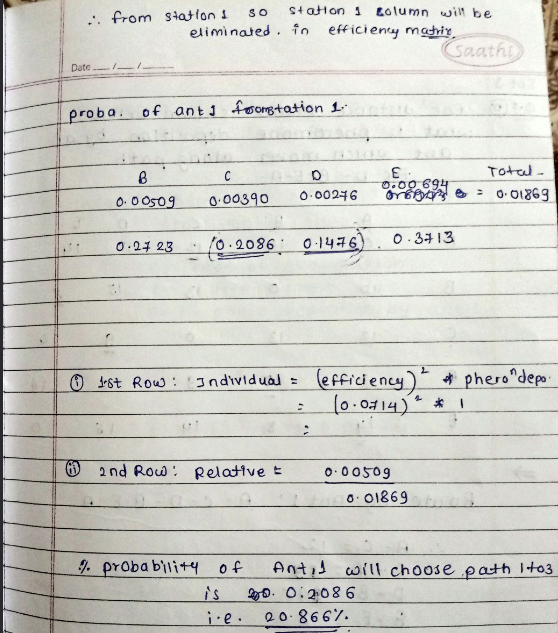 ∴ from station 1 so station 1 column will be
eliminated. in efficiency matrix
Saathi
Date __/__/__
proba. of ant 1 from station 1.
B C D E Total
0.00509 0.00390 0.00276 0.00694 = 0.01869
0.2723 (0.2086 0.1476) 0.3713
(i) 1st Row: Individual = (efficiency)² * pheroⁿ depo.
= (0.0714)² * 1
=
(ii) 2nd Row: Relative = 0.00509
0.01869
% probability of Ant 1 will choose path 1 to 3
is 0.2086
i.e. 20.866%.